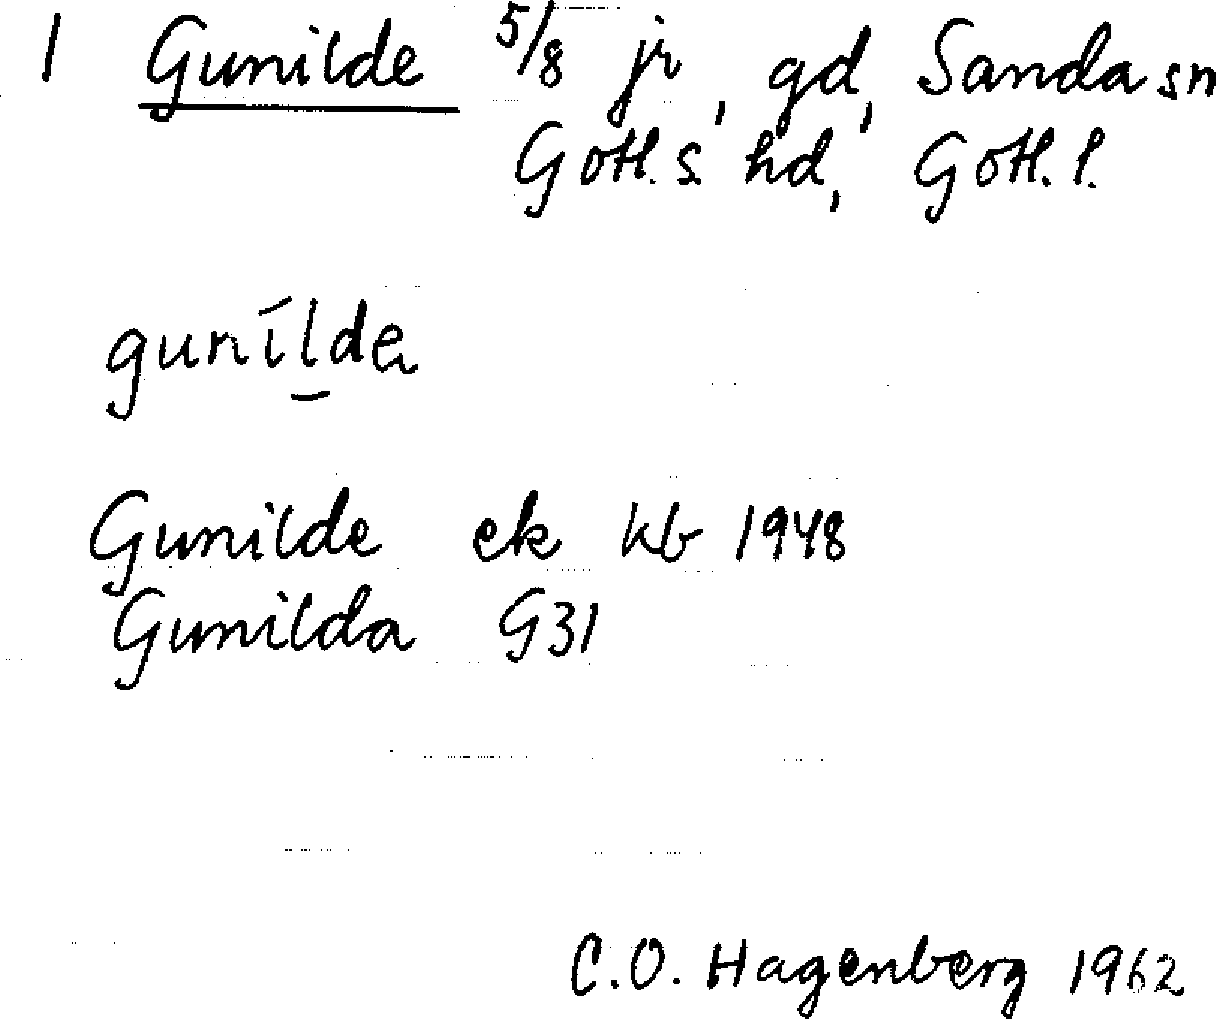 1 Gunilde 5/8 jr, gd, Sanda sn
Gotl. s. hd, Gotl. l.
gunílde
Gunilde ek kb 1948
Gunilda G31
C.O. Hagenberg 1962